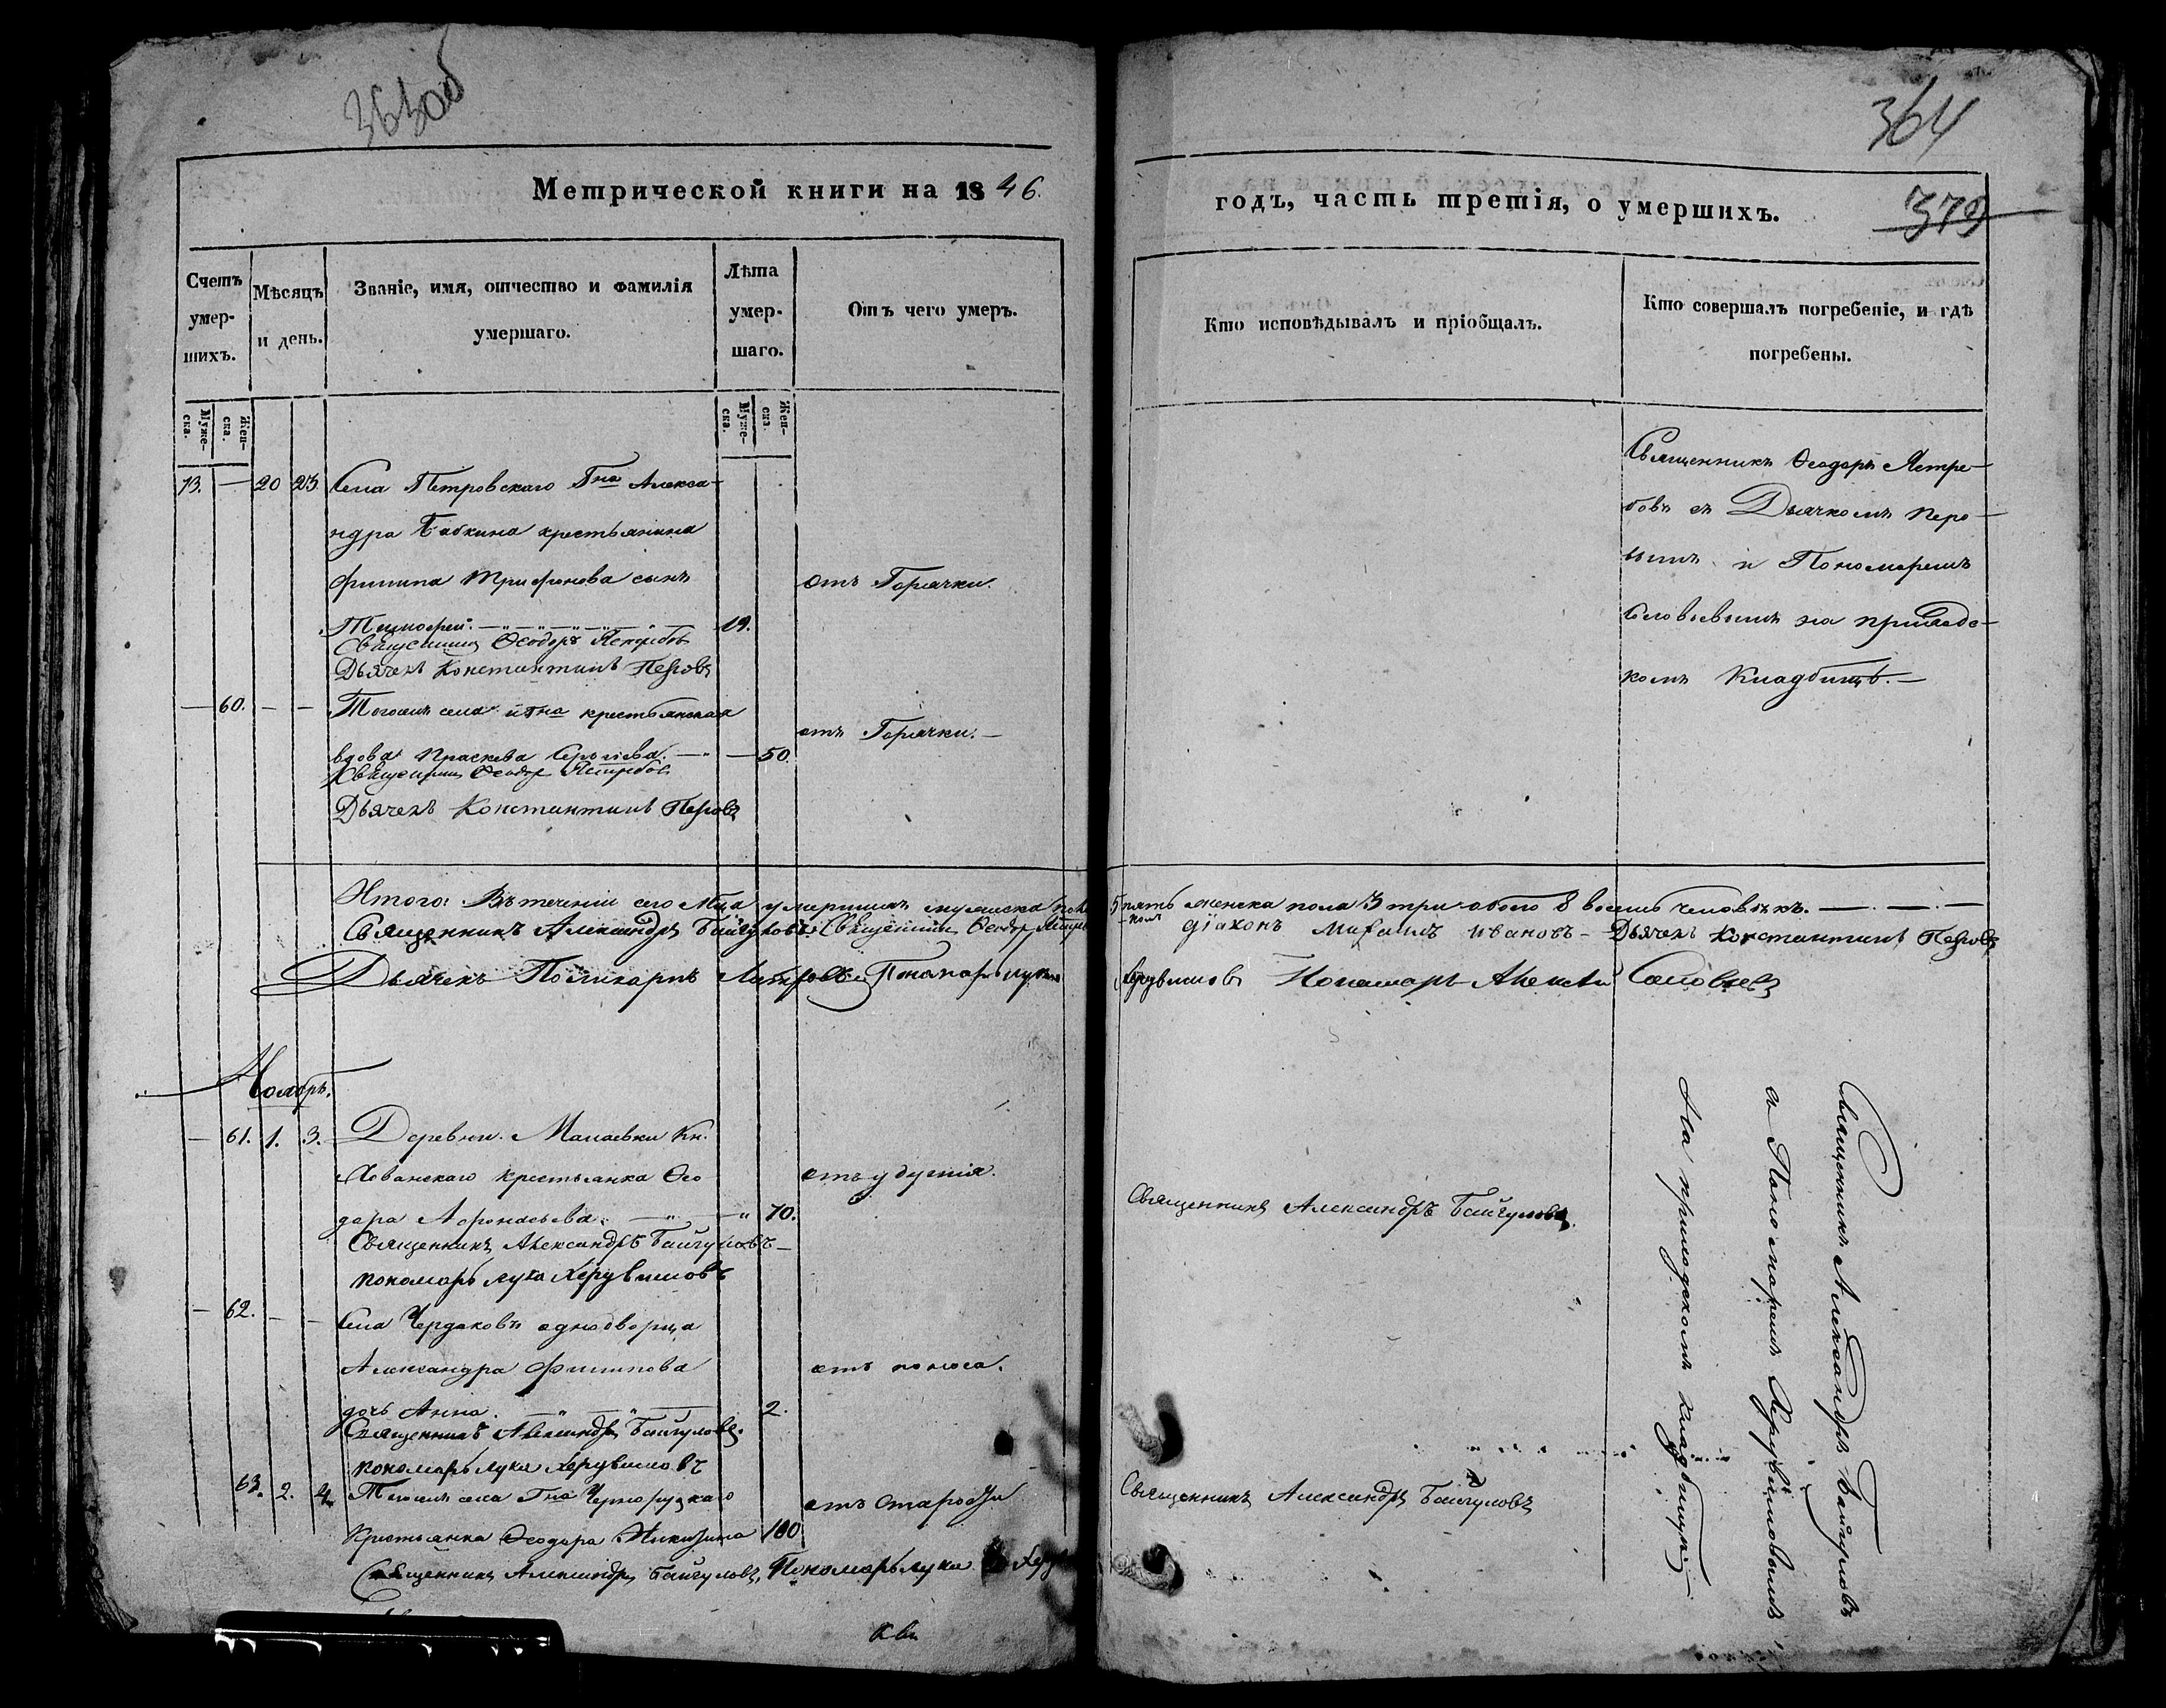 363об
Метрической книги на 1846.
Счетъ умер-шихъ.
Мѣсяцъ и день.
Званіе, имя, отчество и фамилія умершаго.
Лѣта умер-шаго.
Отъ чего умеръ.
Муже-ска.
Жен-ска.
Муже-ска.
Жен-ска.
13. — 20 23. Села Петровскаго Гна Алекса-
ндра Бабкина крестьянина
Филипа Трифонова сынъ
отъ Горячки.
Тимофей. 19.
Священникъ Ѳеодоръ Ястребовъ
Дьячекъ Константинъ Перовъ
— 60. — — Тогожъ села и Гна крестьянская
отъ Горячки. —
вдова Праскева Сергѣева. — 50.
Священникъ Ѳеодоръ Ястребовъ
Дьячекъ Константинъ Перовъ
Итого: Въ теченіи сего мца умершихъ мужеска пола
Священникъ Александръ Байгуловъ. Священникъ Ѳеодоръ
Дьячекъ Поликарпъ Пономарь Лука
Ноябрь.
— 61. 1. 3. Деревни Малаевки Кн.
крестьянка Ѳео
отъ удушія.
дора Афонасьева. 70.
Священникъ Александръ Байгуловъ —
пономарь Лука Херувимовъ
— 62. — — Села Чердаковъ однодворца
Александра Филипова
отъ поноса.
дочь Анна. 2.
Священникъ Александръ Байгуловъ.
пономарь Лука Херувимовъ
63. 2. 4. Тогожъ села Гна Чернорудкаго
отъ Старости
Крестьянка Ѳеодора Никитина 100
Священникъ Александръ Байгуловъ, Пономарь Лука
364
годъ, часть третія, о умершихъ.
379
Кто исповѣдывалъ и пріобщалъ.
Кто совершалъ погребеніе, и гдѣ погребены.
Священникъ Ѳеодоръ Ястре-
бовъ съ Дьячкомъ Перо-
вымъ и Пономаремъ
Соловьевымъ на приходс-
комъ Кладбищѣ. —
5 пять женска пола 3 три обоего 8 восемь человѣкъ. —
діаконъ Михаилъ Ивановъ — Дьячекъ Константинъ Перовъ
Херувимовъ Пономарь Алексѣй Соловьевъ
Священникъ Александръ Байгуловъ.
Священникъ Александръ Байгуловъ
Священникъ Александръ Байгуловъ
съ Пономаремъ Херувимовымъ
На приходскомъ кладбищѣ. —